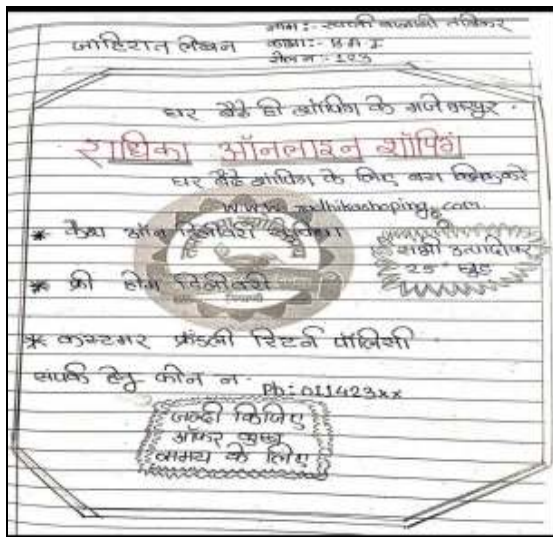 नाम :- स्वाती बालाजी
जाहिरात लेखन
कक्षा :- B.A. I
रोल न :- 123
घर बैठे ही शॉपिंग के मजे भरपूर
राधिका ऑनलाइन शॉपिंग
घर बैठे शॉपिंग के लिए बस क्लिक करे
www.radhikashoping.com.
* कैश ऑन डिलीवरी
सभी उत्पादोपर
25% छुट
* फ्री होम डिलीवरी
* कस्टमर फ्रेंडली रिटर्न पॉलिसी
संपर्क हेतु फोन न. Ph: 011423xx
जल्दी किजिए
ऑफर कुछ
समय के लिए